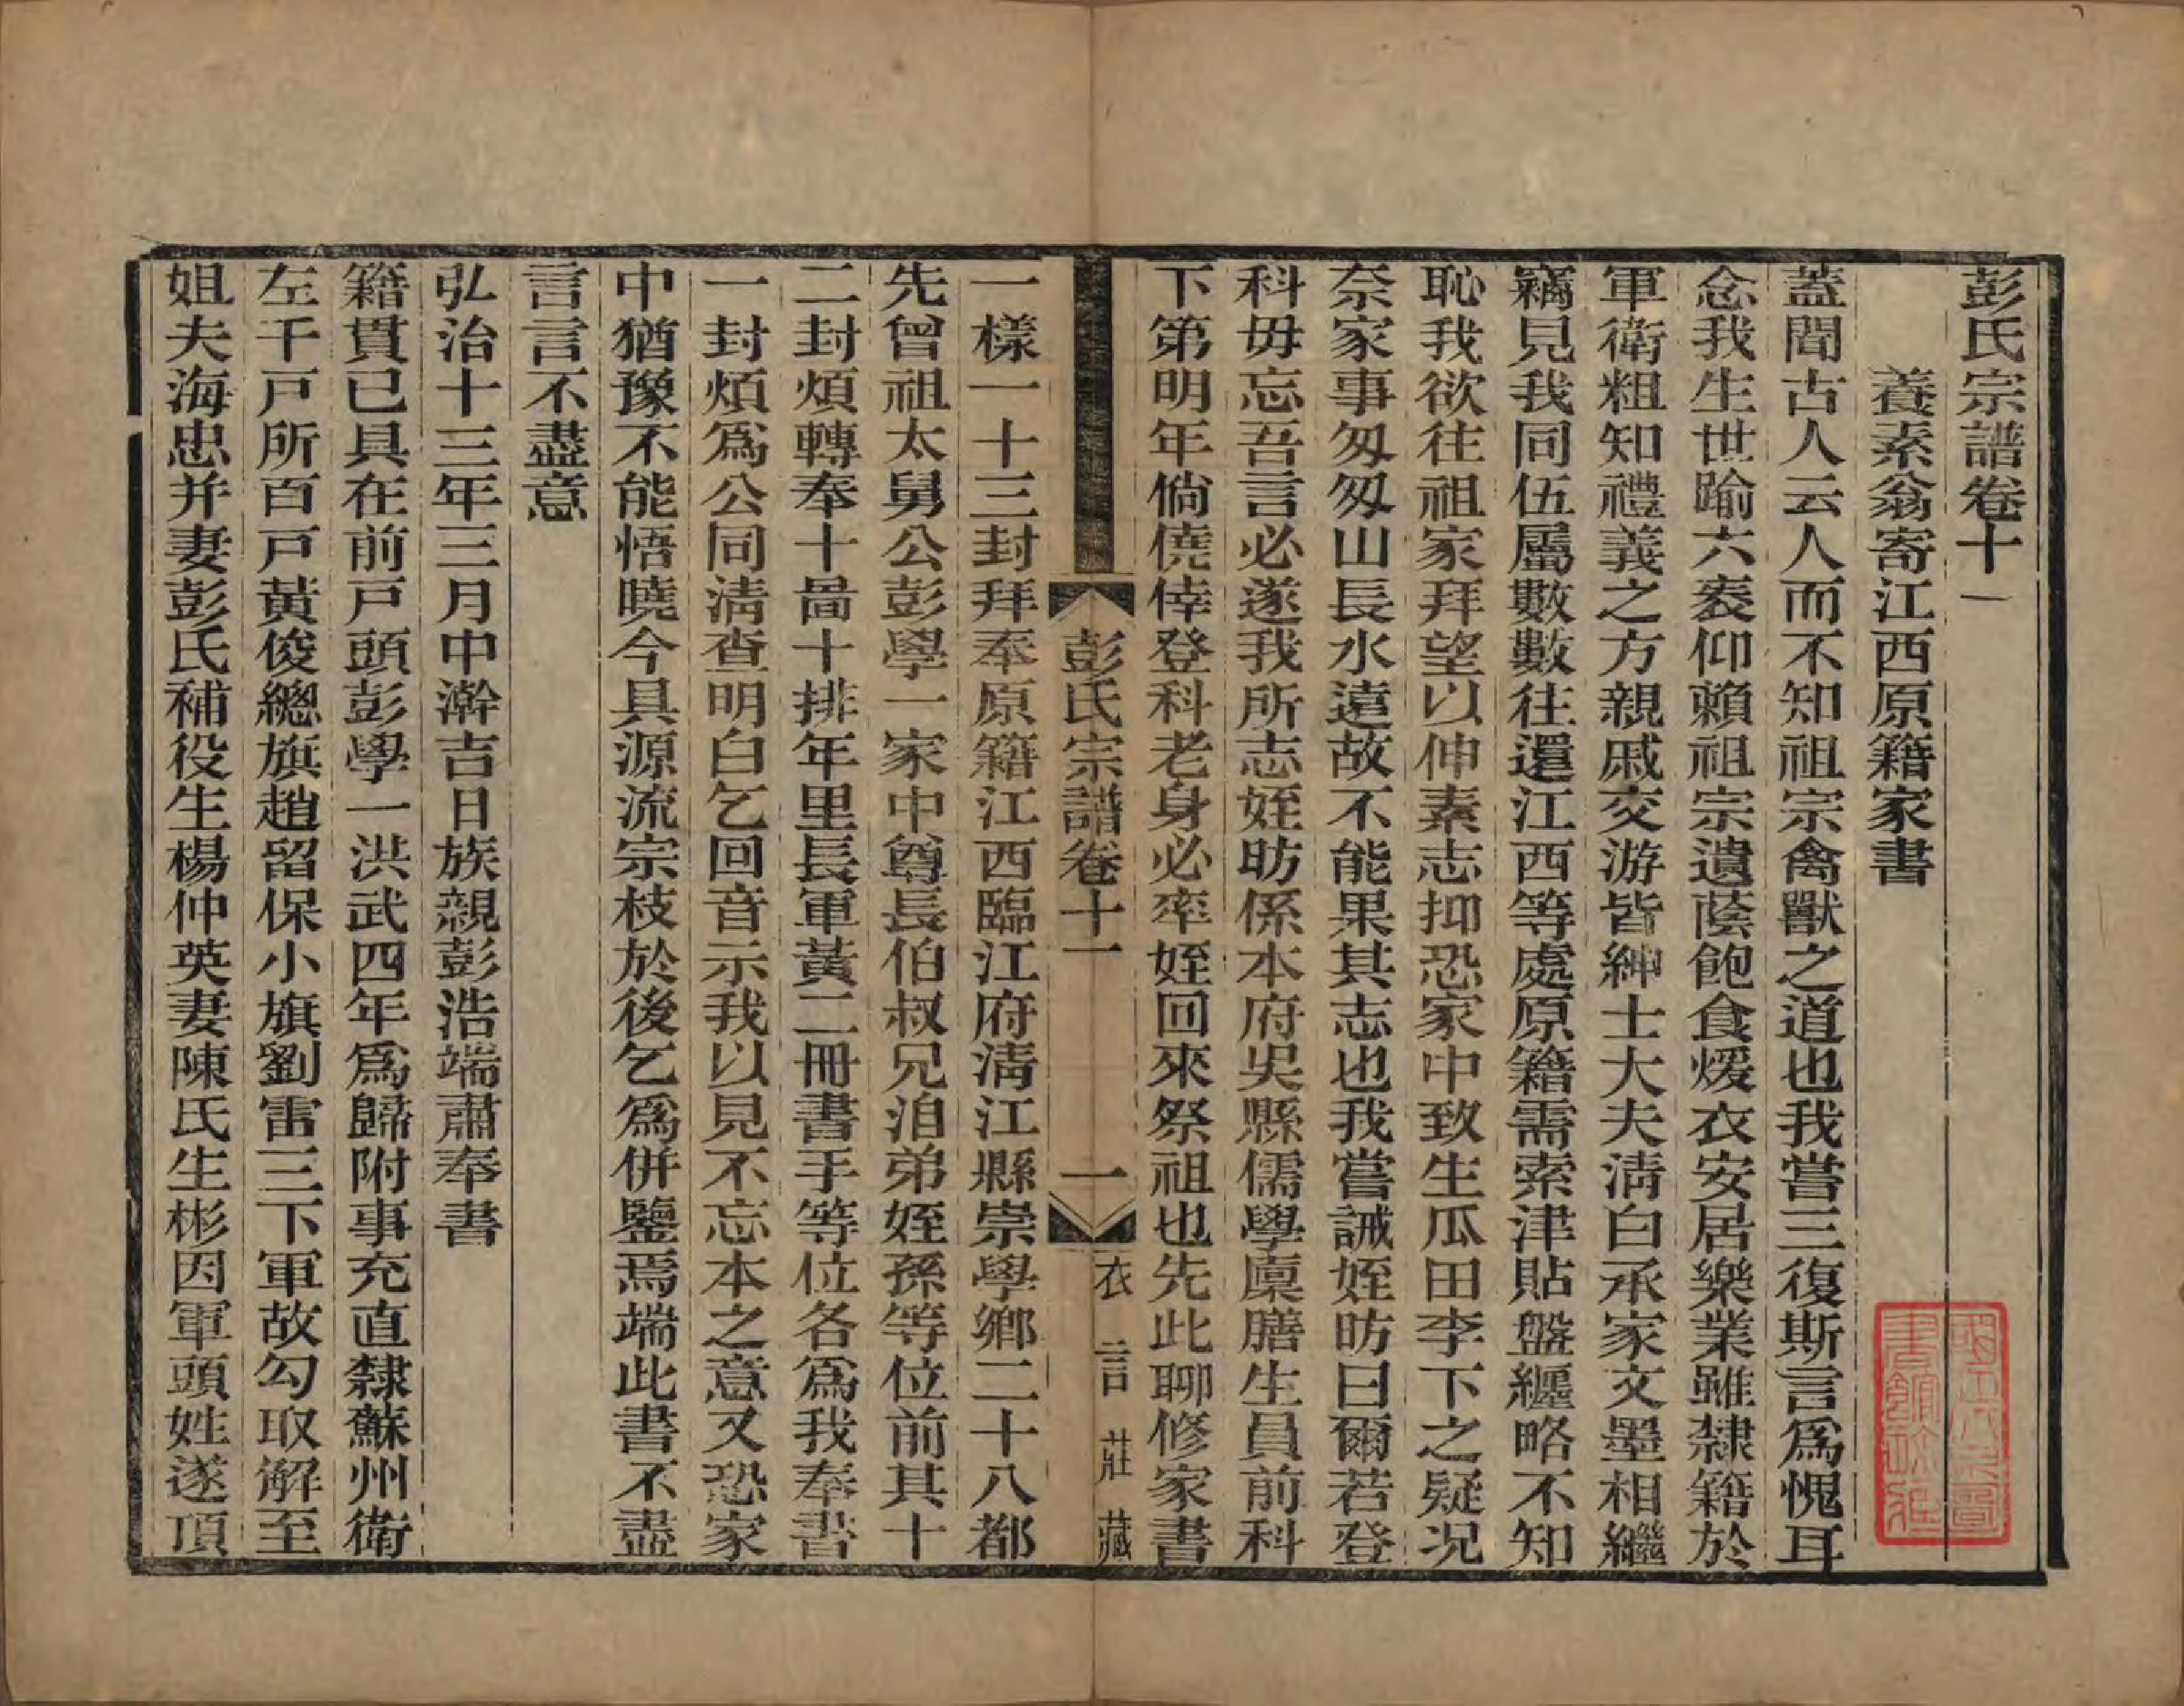 彭氏宗譜卷十一
養素翁寄江西原籍家書
蓋聞古人云人而不知祖宗禽獸之道也我嘗三復斯言爲愧耳
念我生世踰六袠仰賴祖宗遺蔭飽食煖衣安居樂業雖隸籍於
軍衛粗知禮義之方親戚交游皆紳士大夫淸白承家文墨相繼
竊見我同伍屬數數往還江西等處原籍需索津貼盤纏略不知
恥我欲往祖家拜望以伸素志抑恐家中致生瓜田李下之疑况
奈家事匆匆山長水遠故不能果其志也我嘗誡姪昉曰爾若登
科毋忘吾言必遂我所志姪昉係本府吳縣儒學廩膳生員前科
下第明年倘僥倖登科老身必率姪回來祭祖也先此聊修家書
彭氏宗譜卷十一
一
衣言莊藏
一樣一十三封拜奉原籍江西臨江府淸江縣崇學鄉二十八都
先曾祖太舅公彭學一家中尊長伯叔兄洎弟姪孫等位前其十
二封煩轉奉十啚十排年里長軍黃二冊書手等位各爲我奉書
一封煩爲公同淸查明白乞回音示我以見不忘本之意又恐家
中猶豫不能悟曉今具源流宗枝於後乞爲併鑒焉端此書不盡
言言不盡意
弘治十三年三月中澣吉日族親彭浩端肅奉書
籍貫已具在前戸頭彭學一洪武四年爲歸附事充直隸蘇州衛
左千戸所百戸黃俊總旗趙留保小旗劉雷三下軍故勾取解至
姐夫海忠并妻彭氏補役生楊仲英妻陳氏生彬因軍頭姓遂頂